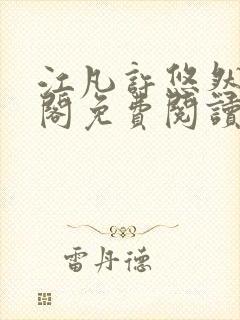 江凡許悠然
閣免費閱讀
雷丹德